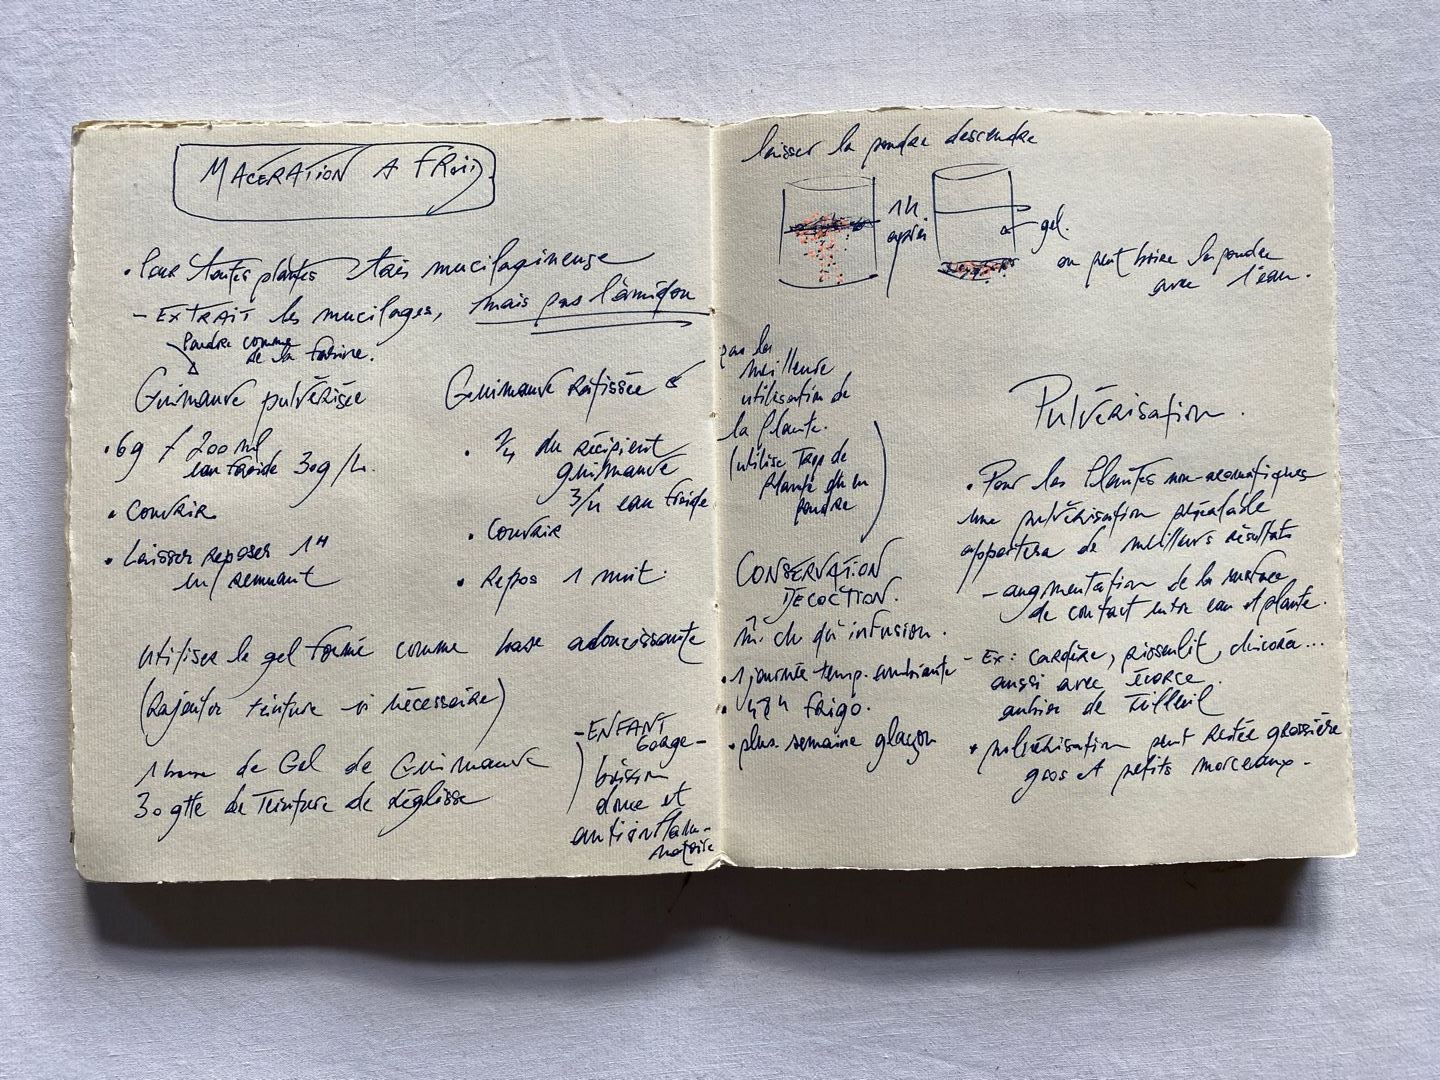 MACERATION A FROID.
• Pour toutes plantes très mucilagineuse
- EXTRAIT les mucilages, mais pas l'amidon
Poudre comme
de la farine.
Guimauve pulvérisée
• 6g / 200 ml
eau froide 30g/L.
• COUVRIR
• Laisser reposer 1H
en remuant
Guimauve Ratissée
• 1/4 du récipient
guimauve
3/4 eau froide
• COUVRIR
• Repos 1 nuit.
utiliser le gel formé comme base adoucissante
(Rajouter teinture si nécessaire)
de Gel de Guimauve
30 gtte de Teinture de réglisse
- ENFANT
GORGE -
boisson
douce et
antiinflam-
matoire
laisser la poudre descendre
1h
après
gel.
on peut boire la poudre
avec l'eau.
pas la
meilleure
utilisation de
la plante.
(utilise Trop de
plante
poudre
CONSERVATION
DECOCTION.
m. ch qu'infusion.
• 1 journée temp. ambiante
• 48H frigo.
• plus. semaine glaçon
Pulvérisation.
• Pour les Plantes non-aromatiques
une pulvérisation préalable
apportera de meilleurs résultats
- augmentation de la surface
de contact entre eau et plante.
- Ex: cardère, pissenlit, chicorée...
aussi avec écorce.
aubier de Tilleul
• pulvérisation peut Restée grossière
gros et petits morceaux.